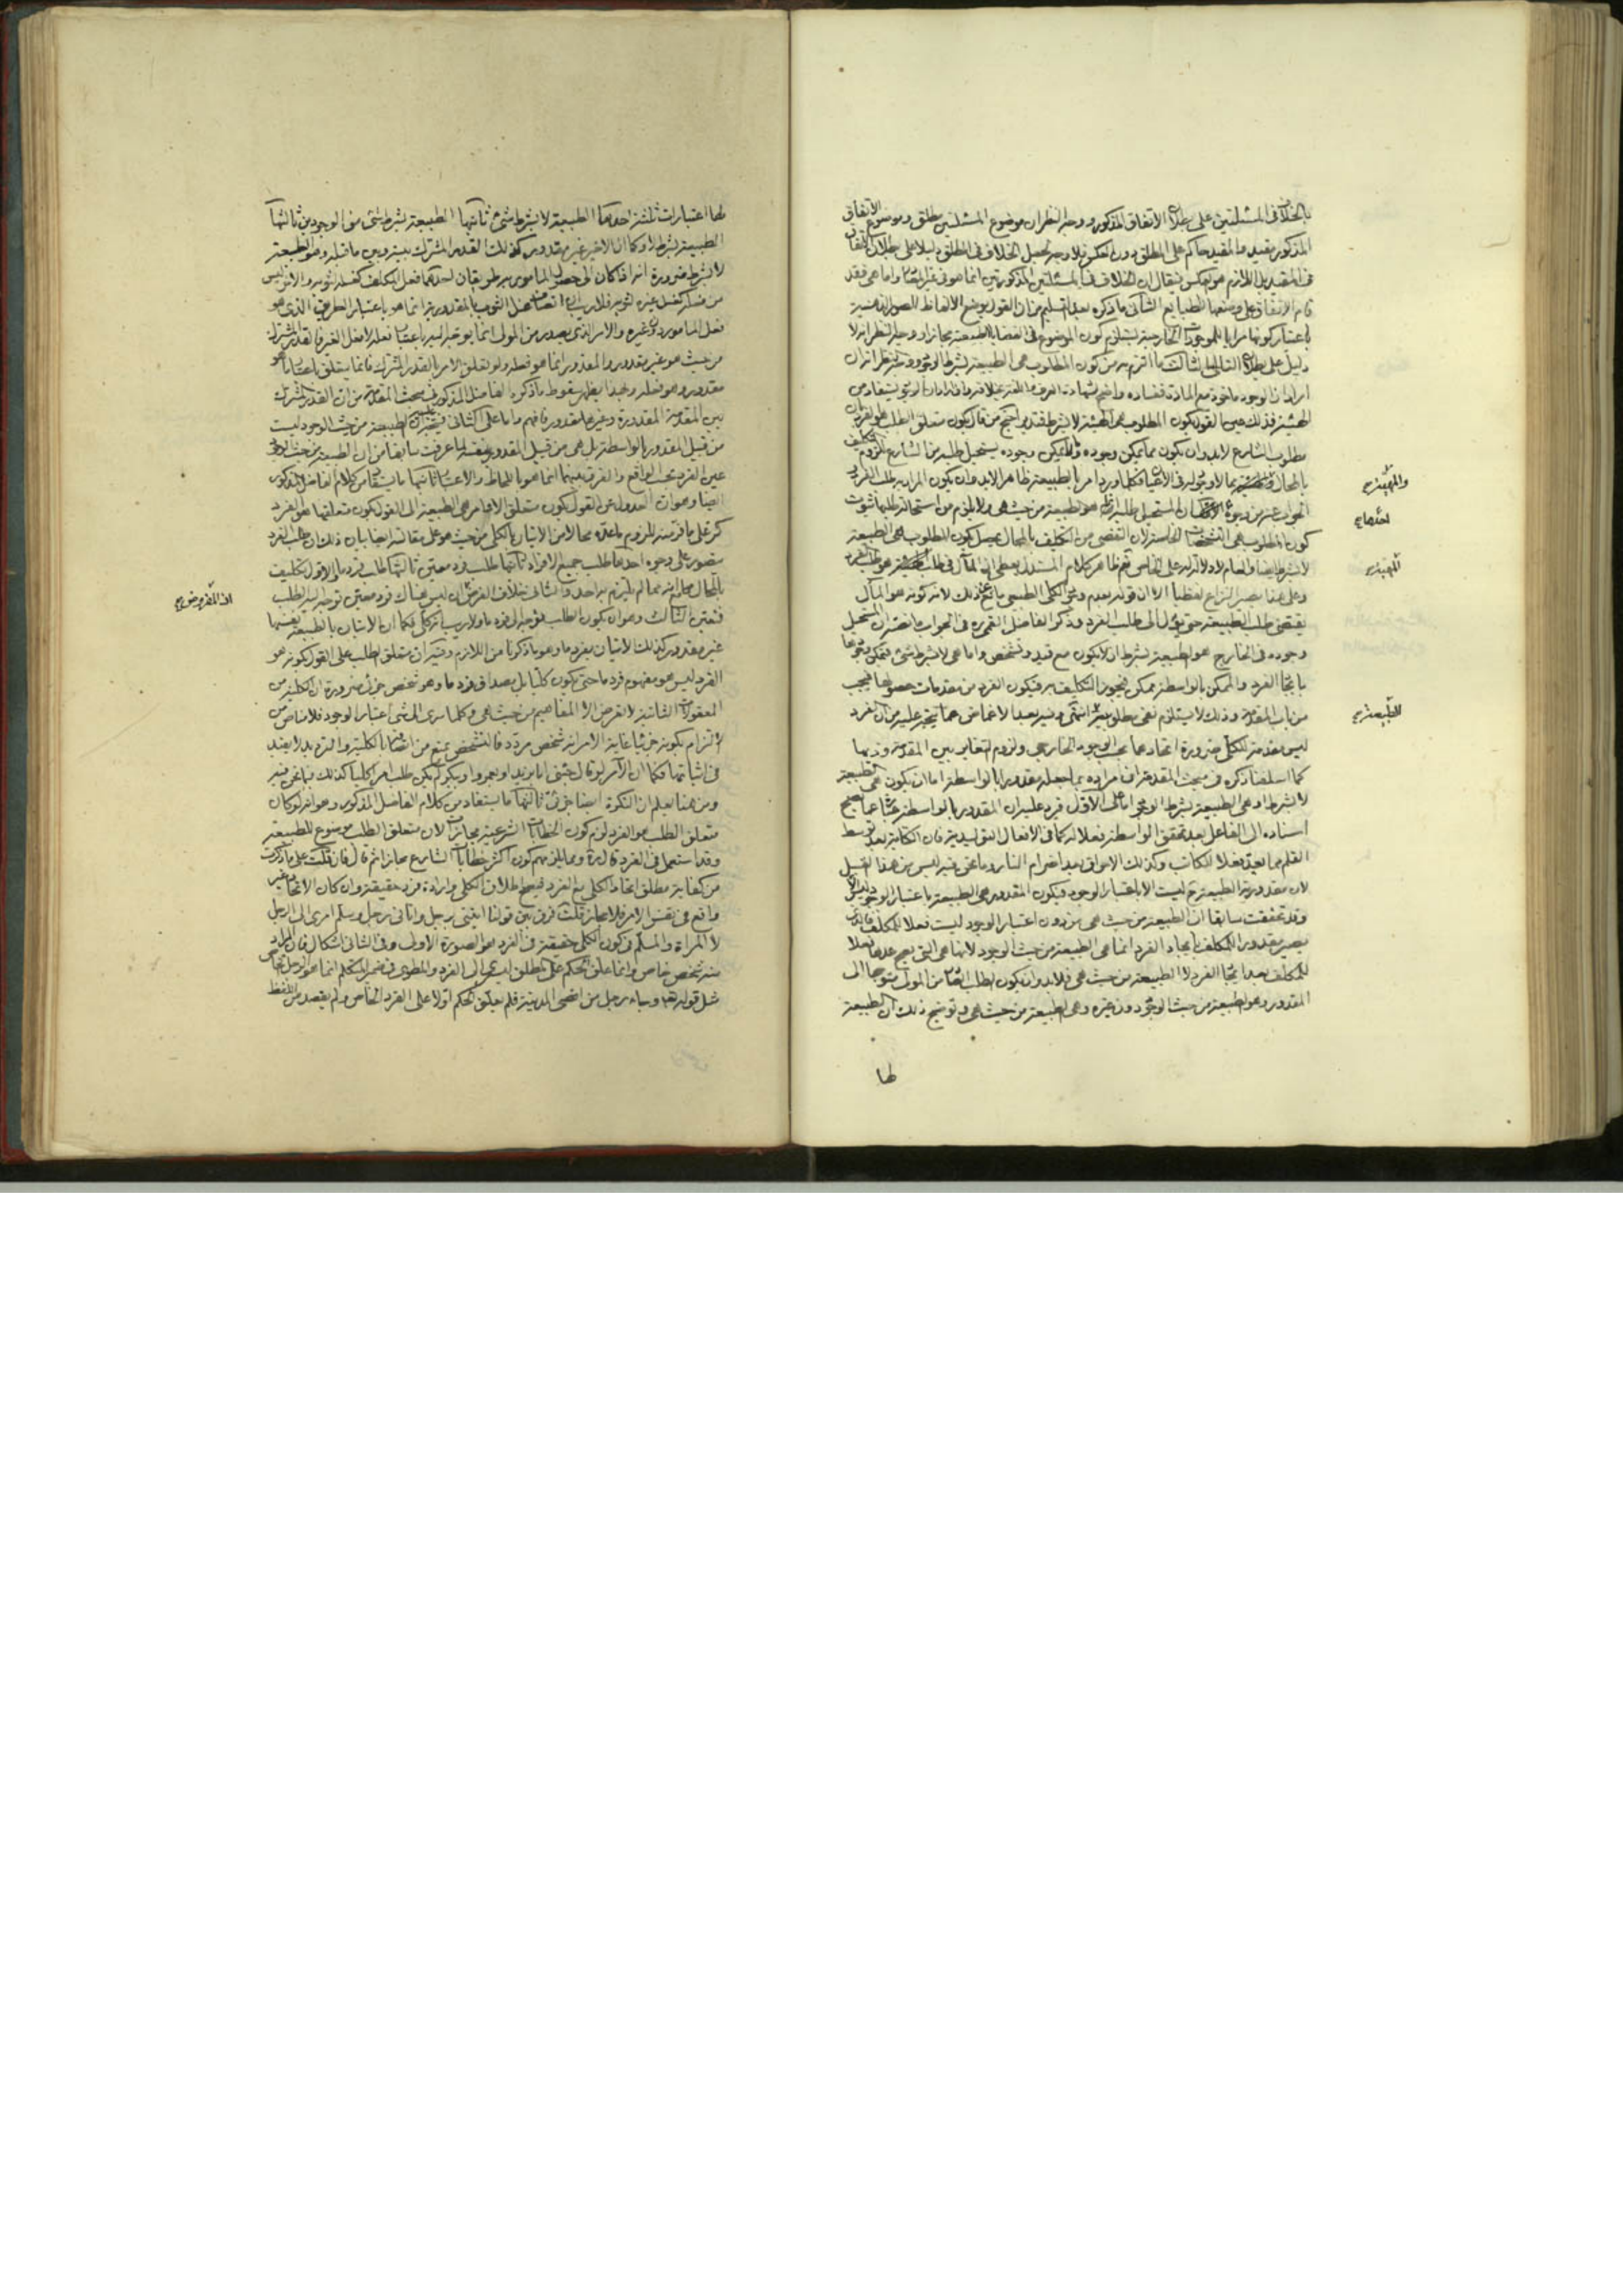 بالخلاف في المسئلتين على بطلان الاتفاق المذكور ووجه النظر ان موضوع المسئلتين مطلق وموضوع الاتفاق
المذكور مقيد والمقيد حاكم على المطلق دون العكس فلا وجه لجعل الخلاف في المطلق دليلا على بطلان الاتفاق
في المقيد بل اللازم هو العكس فيقال ان الخلاف في المسئلتين المذكورتين انما هو في غير المصادر واما هي فقد
قام الاتفاق على وضعها للطبايع الثاني ما ذكره بعد التسليم من ان القول بوضع الالفاظ للصور الذهنية
باعتبار كونها مرايا للموجودات الخارجية يستلزم كون الموضوع في القضايا الطبيعية مجازا ووجه النظر انه لا
دليل على بطلان التالي الثالث ما التزم به من كون المطلوب هي الطبيعة بشرط الوجود ووجه النظر انه ان
اراد ان الوجود ماخوذ مع المادة ففساده واضح لشهادة العرف واللغة بخلافه وان اراد ان الوجود يستفاد من
الهيئة فذلك عين القول بكون المطلوب هي الطبيعة لا بشرط فتدبر احتج من قال بكون متعلق الطلب هو الفرد بان
مطلوب الشارع لابد وان يكون مما يمكن وجوده وما لا يمكن وجوده يستحيل طلبه من الشارع للزوم التكليف
بالمحال والطبيعة مما لا وجود له في الاعيان فكلما ورد امر بالطبيعة ظاهرا لابد وان يكون المراد به طلب الفرد
الجواب عنه من وجوه الاول ان المستحيل طلبه انما هو الطبيعة من حيث هي ولا يلزم من استحالة طلبها ثبوت
كون المطلوب هي الشخصيات الخاصة لان التفصي من التكليف بالمحال يحصل بكون المطلوب هي الطبيعة
لا بشرط ايضا والعام لا دلالة له على الخاص نعم ظاهر كلام المستدل يعطي ان المآل في طلب الطبيعة هو طلب الفرد
وعلى هذا يصير النزاع لفظيا الا ان قوله بعدم وجود الكلي الطبيعي يمانع عن ذلك لانه كونه هو المآل
يقتضي طلب الطبيعة حتى يؤل الى طلب الفرد وذكر الفاضل القمي ره في الجواب ما نصه ان المستحيل
وجوده في الخارج هو الطبيعة بشرط ان لا يكون مع قيد وتشخص واما هي لا بشرط شئ فيمكن وجودها
بايجاد الفرد والممكن بالواسطة ممكن فيجوز التكليف به فيكون الفرد من مقدمات حصولها فيجب
من باب المقدمة وذلك لا يستلزم نفي مطلوبيتها انتهى وفيه بعد الاغماض عما يتجه عليه من ان الفرد
ليس مقدمة للكلي ضرورة اتحادهما بحسب الوجود الخارجي ولزوم التغاير بين المقدمة وذيها
كما اسلفنا ذكره في مبحث المقدمة ان مراده بما جعله مقدورا بالواسطة اما ان يكون هي الطبيعة
لا بشرط او هي الطبيعة بشرط الوجود اما على الاول فيرد عليه ان المقدور بالواسطة عبارة عما يصح
اسناده الى الفاعل بعد تحقق الواسطة فعلا له كما في الافعال التوليدية فان الكتابة بعد توسط
القلم مما يعد فعلا للكاتب وكذلك الاحراق بعد اضرام النار وما نحن فيه ليس من هذا القبيل
لان مقدورية الطبيعة ليست الا باعتبار الوجود فيكون المقدور هي الطبيعة باعتبار الوجود
وقد تحققت سابقا ان الطبيعة من حيث هي من دون اعتبار الوجود ليست فعلا للمكلف فالذي
يصير مقدورا للمكلف بايجاد الفرد انما هي الطبيعة من حيث الوجود لانها هي التي يصح عدها فعلا
للمكلف بعد ايجاد الفرد لا الطبيعة من حيث هي فلابد وان يكون الطلب الصادر من المولى متوجها الى
المقدور وهو الطبيعة من حيث الوجود دون غيره وهي الطبيعة من حيث هي وتوضيح ذلك ان الطبيعة
لها
لها اعتبارات ثلثة احدها الطبيعة لا بشرط شئ ثانيها الطبيعة بشرط شئ من الوجودين ثالثها
الطبيعة بشرط لا وكما ان الاخير غير مقدور كذلك القدر المشترك بينه وبين ما قبله وهو الطبيعة
لا بشرط ضرورة انه اذا كان الى حصول المامور به طريقان احدهما فعل المكلف كغسله ثوبه والاخر ليس
من فعله كغسل غيره ثوبه فلا ريب ان اتصاف غسل الثوب بالمقدورية انما هو باعتبار الطريق الذي هو
فعل المامور دون غيره والامر الذي يصدر من المولى انما يوجه اليه باعتبار فعله لا فعل الغير فالقدر المشترك
من حيث هو غير مقدور والمقدور انما هو فعله ولو تعلق الامر بالقدر المشترك فانما يتعلق باعتبار ما هو
مقدور وهو فعله وبهذا يظهر سقوط ما ذكره الفاضل المذكور في مبحث المقدمة من ان القدر المشترك
بين المقدمة المقدورة وغيرها مقدور فافهم واما على الثاني فيتجه عليه ان الطبيعة من حيث الوجود ليست
من قبيل المقدور بالواسطة بل هي من قبيل المقدور بنفسه لما عرفت سابقا من ان الطبيعة من حيث الوجود
عين الفرد بحسب الواقع والفرق بينهما انما هو باللحاظ والاعتبار ثانيها ما يستفاد من كلام الفاضل المذكور
ايضا وهو ان العدول عن القول بكون متعلق الاوامر هي الطبيعة الى القول بكون متعلقها هو الفرد
كر على ما فر منه للزوم ما عده محالا من الاتيان بالكلي من حيث هو على مقالته ايضا بيان ذلك ان طلب الفرد
يتصور على وجوه احدها طلب جميع الافراد ثانيها طلب فرد معين ثالثها طلب فرد ما والاول تكليف
بالمحال مع انه مما لم يلتزم به احد والثاني خلاف الفرض اذ ليس هناك فرد معين توجه اليه الطلب
فتعين الثالث وهو ان يكون الطلب متوجه الى فرد ما ولا ريب انه كلي فكما ان الاتيان بالطبيعة نفسها
غير مقدور كذلك الاتيان بفرد ما وهو ما ذكرنا من اللازم وفيه ان متعلق الطلب على القول بكونه هو
الفرد ليس هو مفهوم فرد ما حتى يكون كليا بل مصداق فرد ما وهو شخص جزئي ضرورة ان الكلية من
المعقولات الثانية لا تعرض الا المفاهيم من حيث هي وكلما سرى الى شئ اعتبار الوجود فلا مناص من
الالتزام بكونه جزئيا غاية الامر انه شخص مردد فالتشخص يمنع من اتصافه بالكلية والترديد لا يفيد
في اثباتها فكما ان الآمر لو قال جئني اما بزيد او بعمرو او ببكر لم يكن طلب امرا كليا كذلك فيما نحن فيه
ومن هنا يعلم ان النكرة ايضا جزئي ثالثها ما يستفاد من كلام الفاضل المذكور وهو انه لو كان
متعلق الطلب هو الفرد لزم كون الخطابات الشرعية مجازات لان متعلق الطلب موضوع للطبيعة
وقد استعمل في الفرد قال ره ومما يلزمهم كون اكثر خطابات الشارع مجازا ثم قال فان قلت على ما ذكرت
من كفاية مطلق اتحاد الكلي مع الفرد فيصح اطلاق الكلي وارادة فرد حقيقة وان كان الاتحاد غير
واقع في نفس الامر فلا مجاز قلت فرق بين قولنا ايتني برجل واتاني رجل وسلم امرى الى الرجل
لا المراة والمسلم في كون الكلي حقيقة في الفرد هو الصورة الاولى وفي الثاني اشكال فان المراد
منه شخص خاص وانما علق الحكم على المطلق ليسري الى الفرد والمطوي في ضمير المتكلم انما هو الرجل الخاص
مثل قوله تعالى وجاء رجل من اقصى المدينة فلم يعلق الحكم اولا على الفرد الخاص ولم يقصد من اللفظ